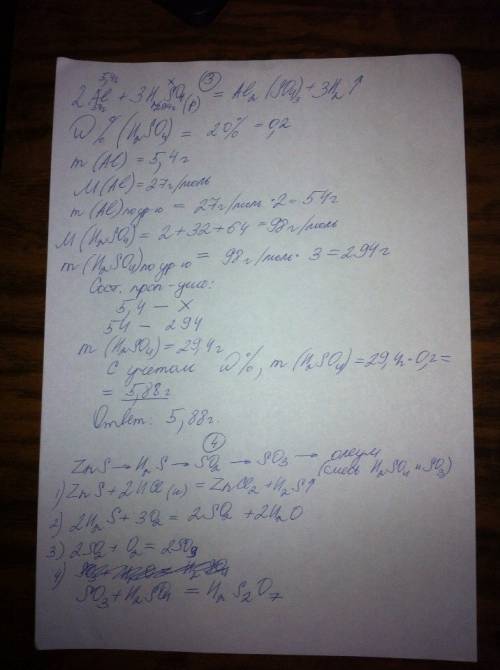 ③
5,4г x
2Al + 3H₂SO₄ (р) = Al₂(SO₄)₃ + 3H₂↑
54г 294г
W% (H₂SO₄) = 20% = 0,2
m (Al) = 5,4 г
M(Al) = 27 г/моль
m (Al) по ур-ю = 27 г/моль · 2 = 54 г
M (H₂SO₄) = 2 + 32 + 64 = 98 г/моль
m (H₂SO₄) по ур-ю = 98 г/моль · 3 = 294 г
Сост. проп-цию:
5,4 — x
54 — 294
m (H₂SO₄) = 29,4 г
С учетом W%, m (H₂SO₄) = 29,4 · 0,2 =
= 5,88 г
Ответ: 5,88 г.
④
ZnS → H₂S → SO₂ → SO₃ → олеум
(смесь H₂SO₄ и SO₃)
1) ZnS + 2HCl (к) = ZnCl₂ + H₂S↑
2) 2H₂S + 3O₂ = 2SO₂ + 2H₂O
3) 2SO₂ + O₂ = 2SO₃
4)
SO₃ + H₂SO₄ = H₂S₂O₇